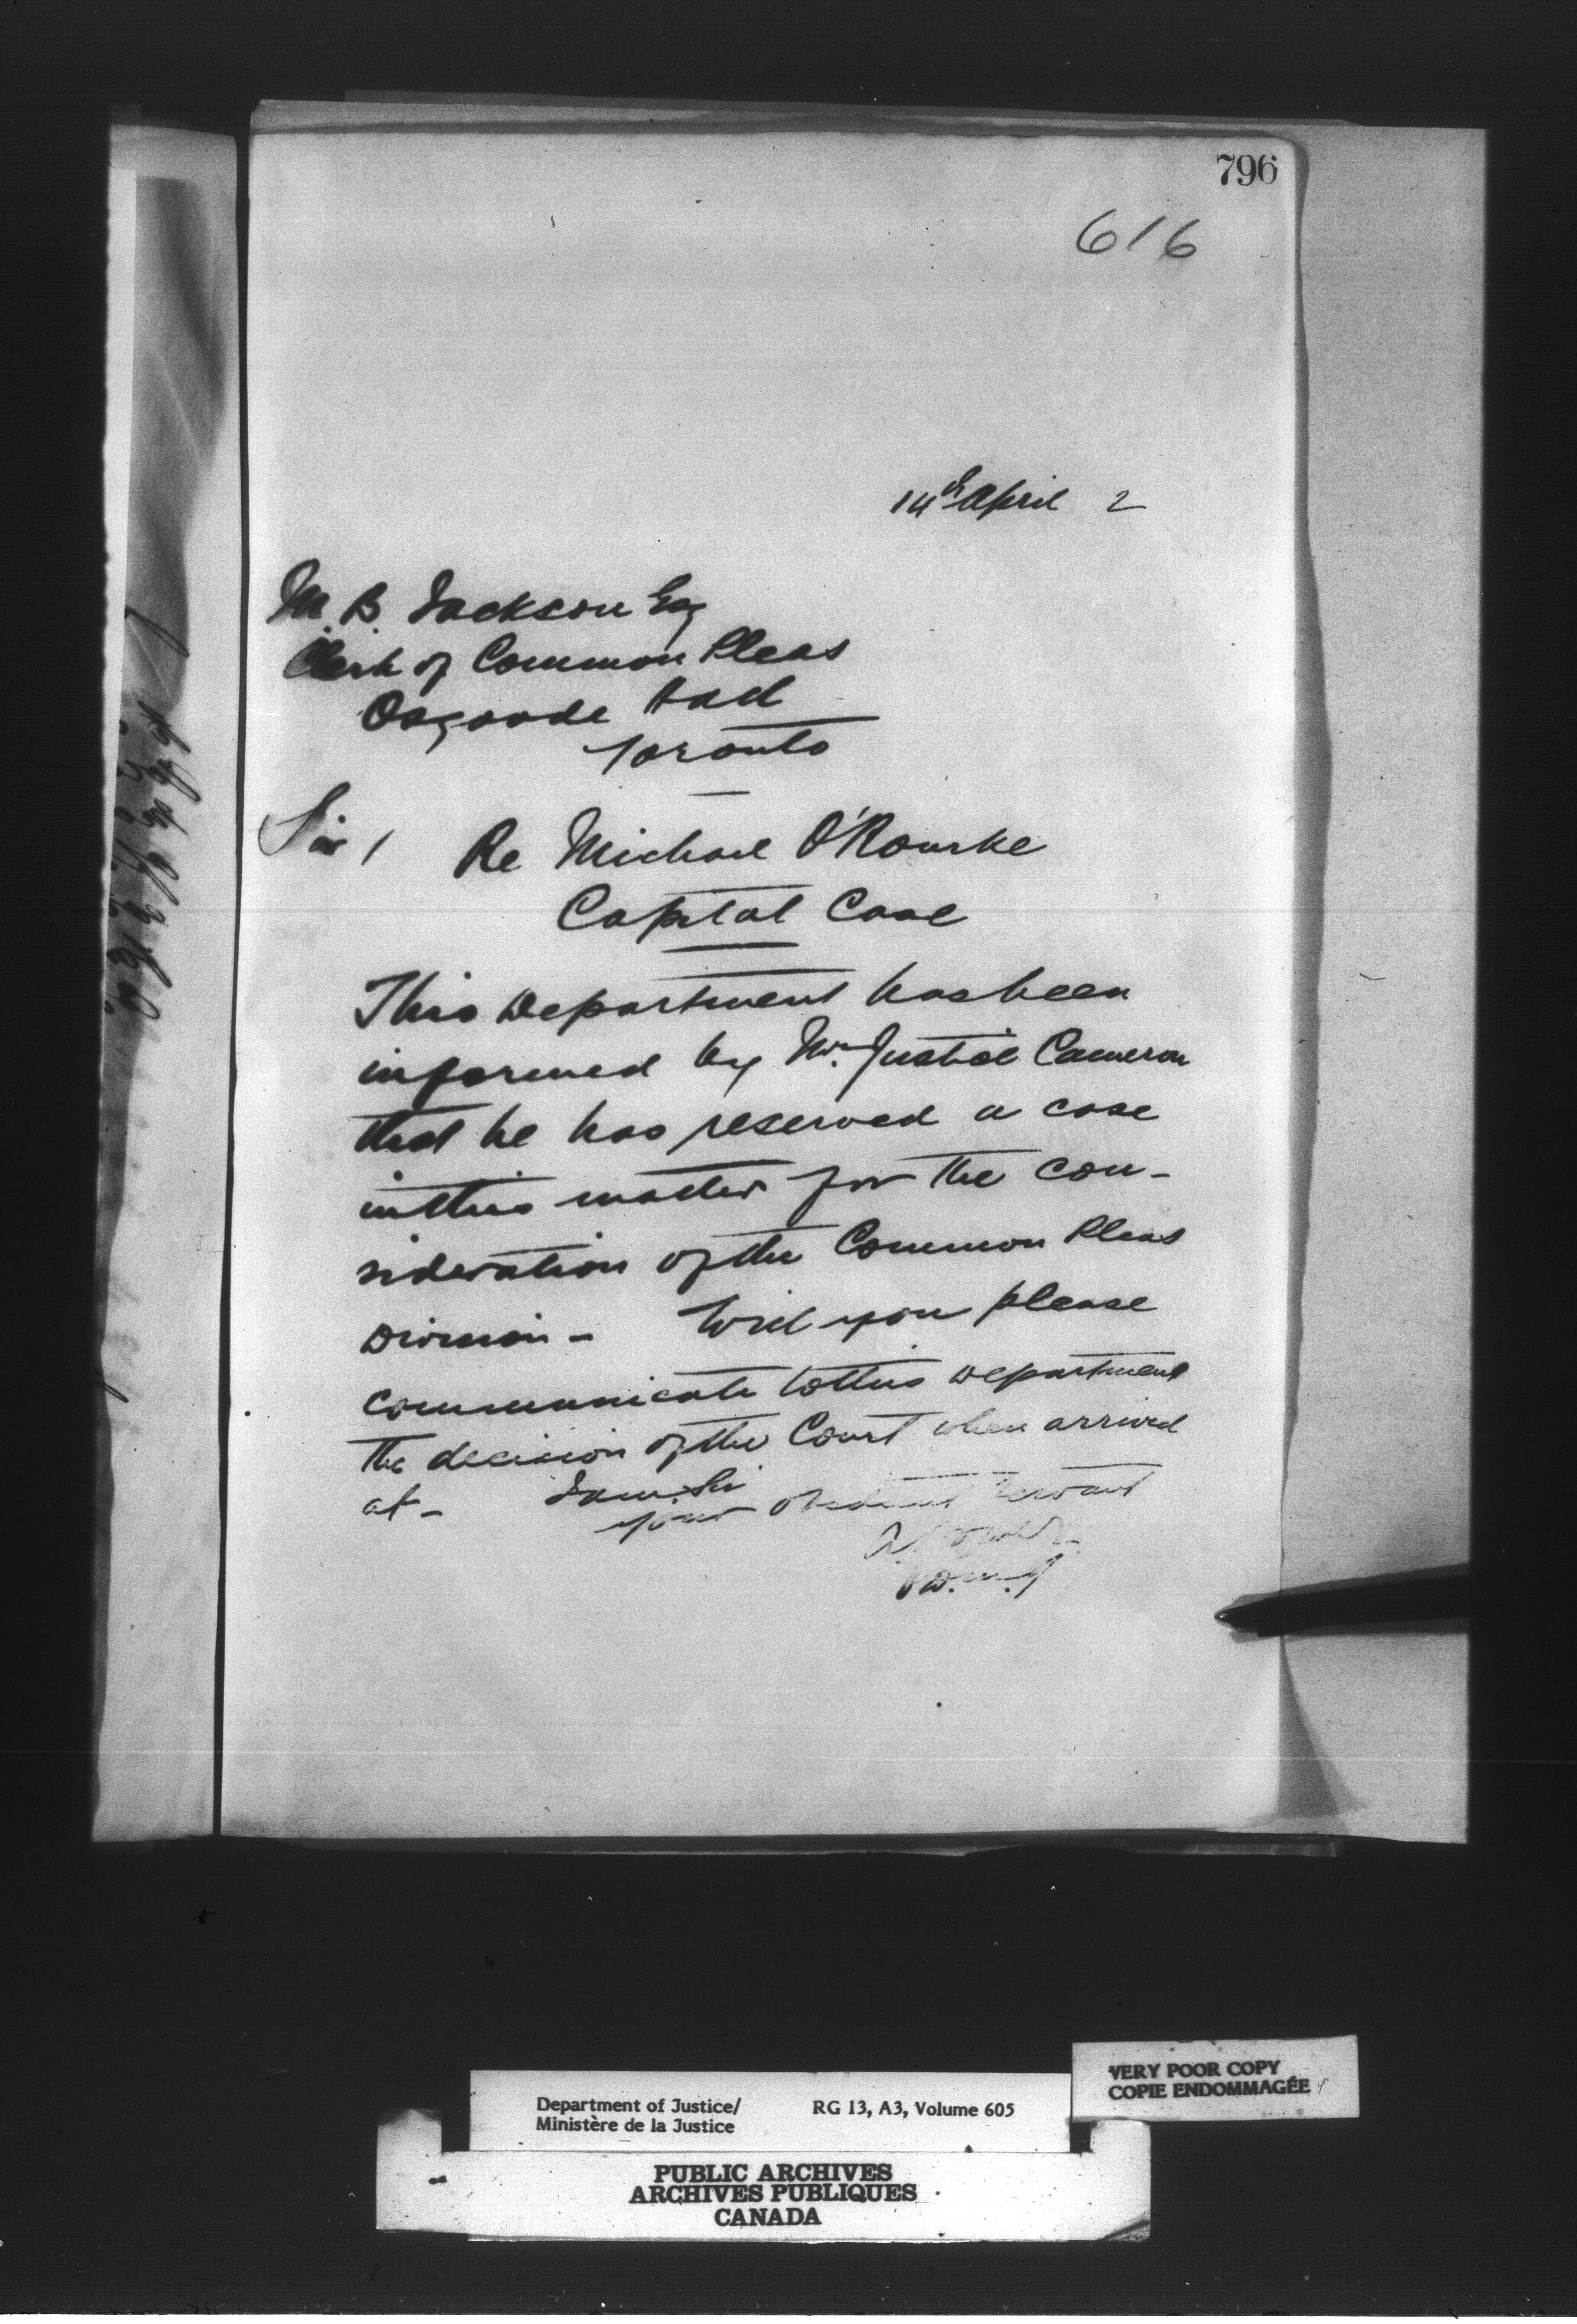 796
616
14th April 2
M. B. Jackson Esq
Clerk of Common Pleas
Osgoode Hall
Toronto
Sir,
Re Michael O'Rourke
Capital Case
This Department has been
informed by Mr. Justice Cameron
that he has reserved a case
in this matter for the con-
sideration of the Common Pleas
Division - Will you please
communicate to this Department
the decision of the Court when arrived
at - I am, Sir
your obedient servant
A Power
VERY POOR COPY
COPIE ENDOMMAGÉE
Department of Justice/ RG 13, A3, Volume 605
Ministère de la Justice
PUBLIC ARCHIVES
ARCHIVES PUBLIQUES
CANADA